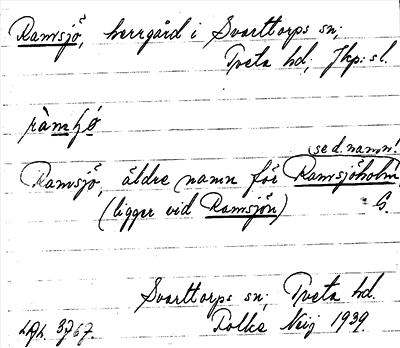 Ramsjö, herrgård i Svarttorps sn;
Tveta hd; Jkp:s l.
ràmʃø
se d. namn!
Ramsjö, äldre namn för Ramsjöholm,
(ligger vid Ramsjön) G.
Svarttorps sn; Tveta hd.
Folke Neij 1939.
LAL. 3767.